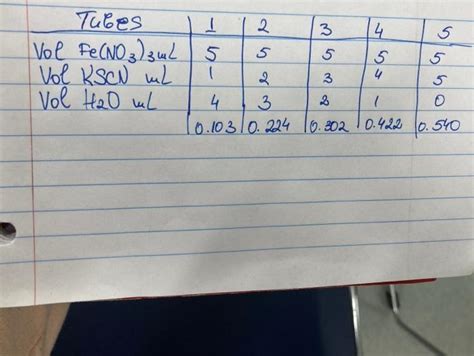 Tubes 1 2 3 4 5
Vol Fe(NO3)3 mL 5 5 5 5 5
Vol KSCN mL 1 2 3 4 5
Vol H2O mL 4 3 2 1 0
0.103 0.224 0.302 0.422 0.540